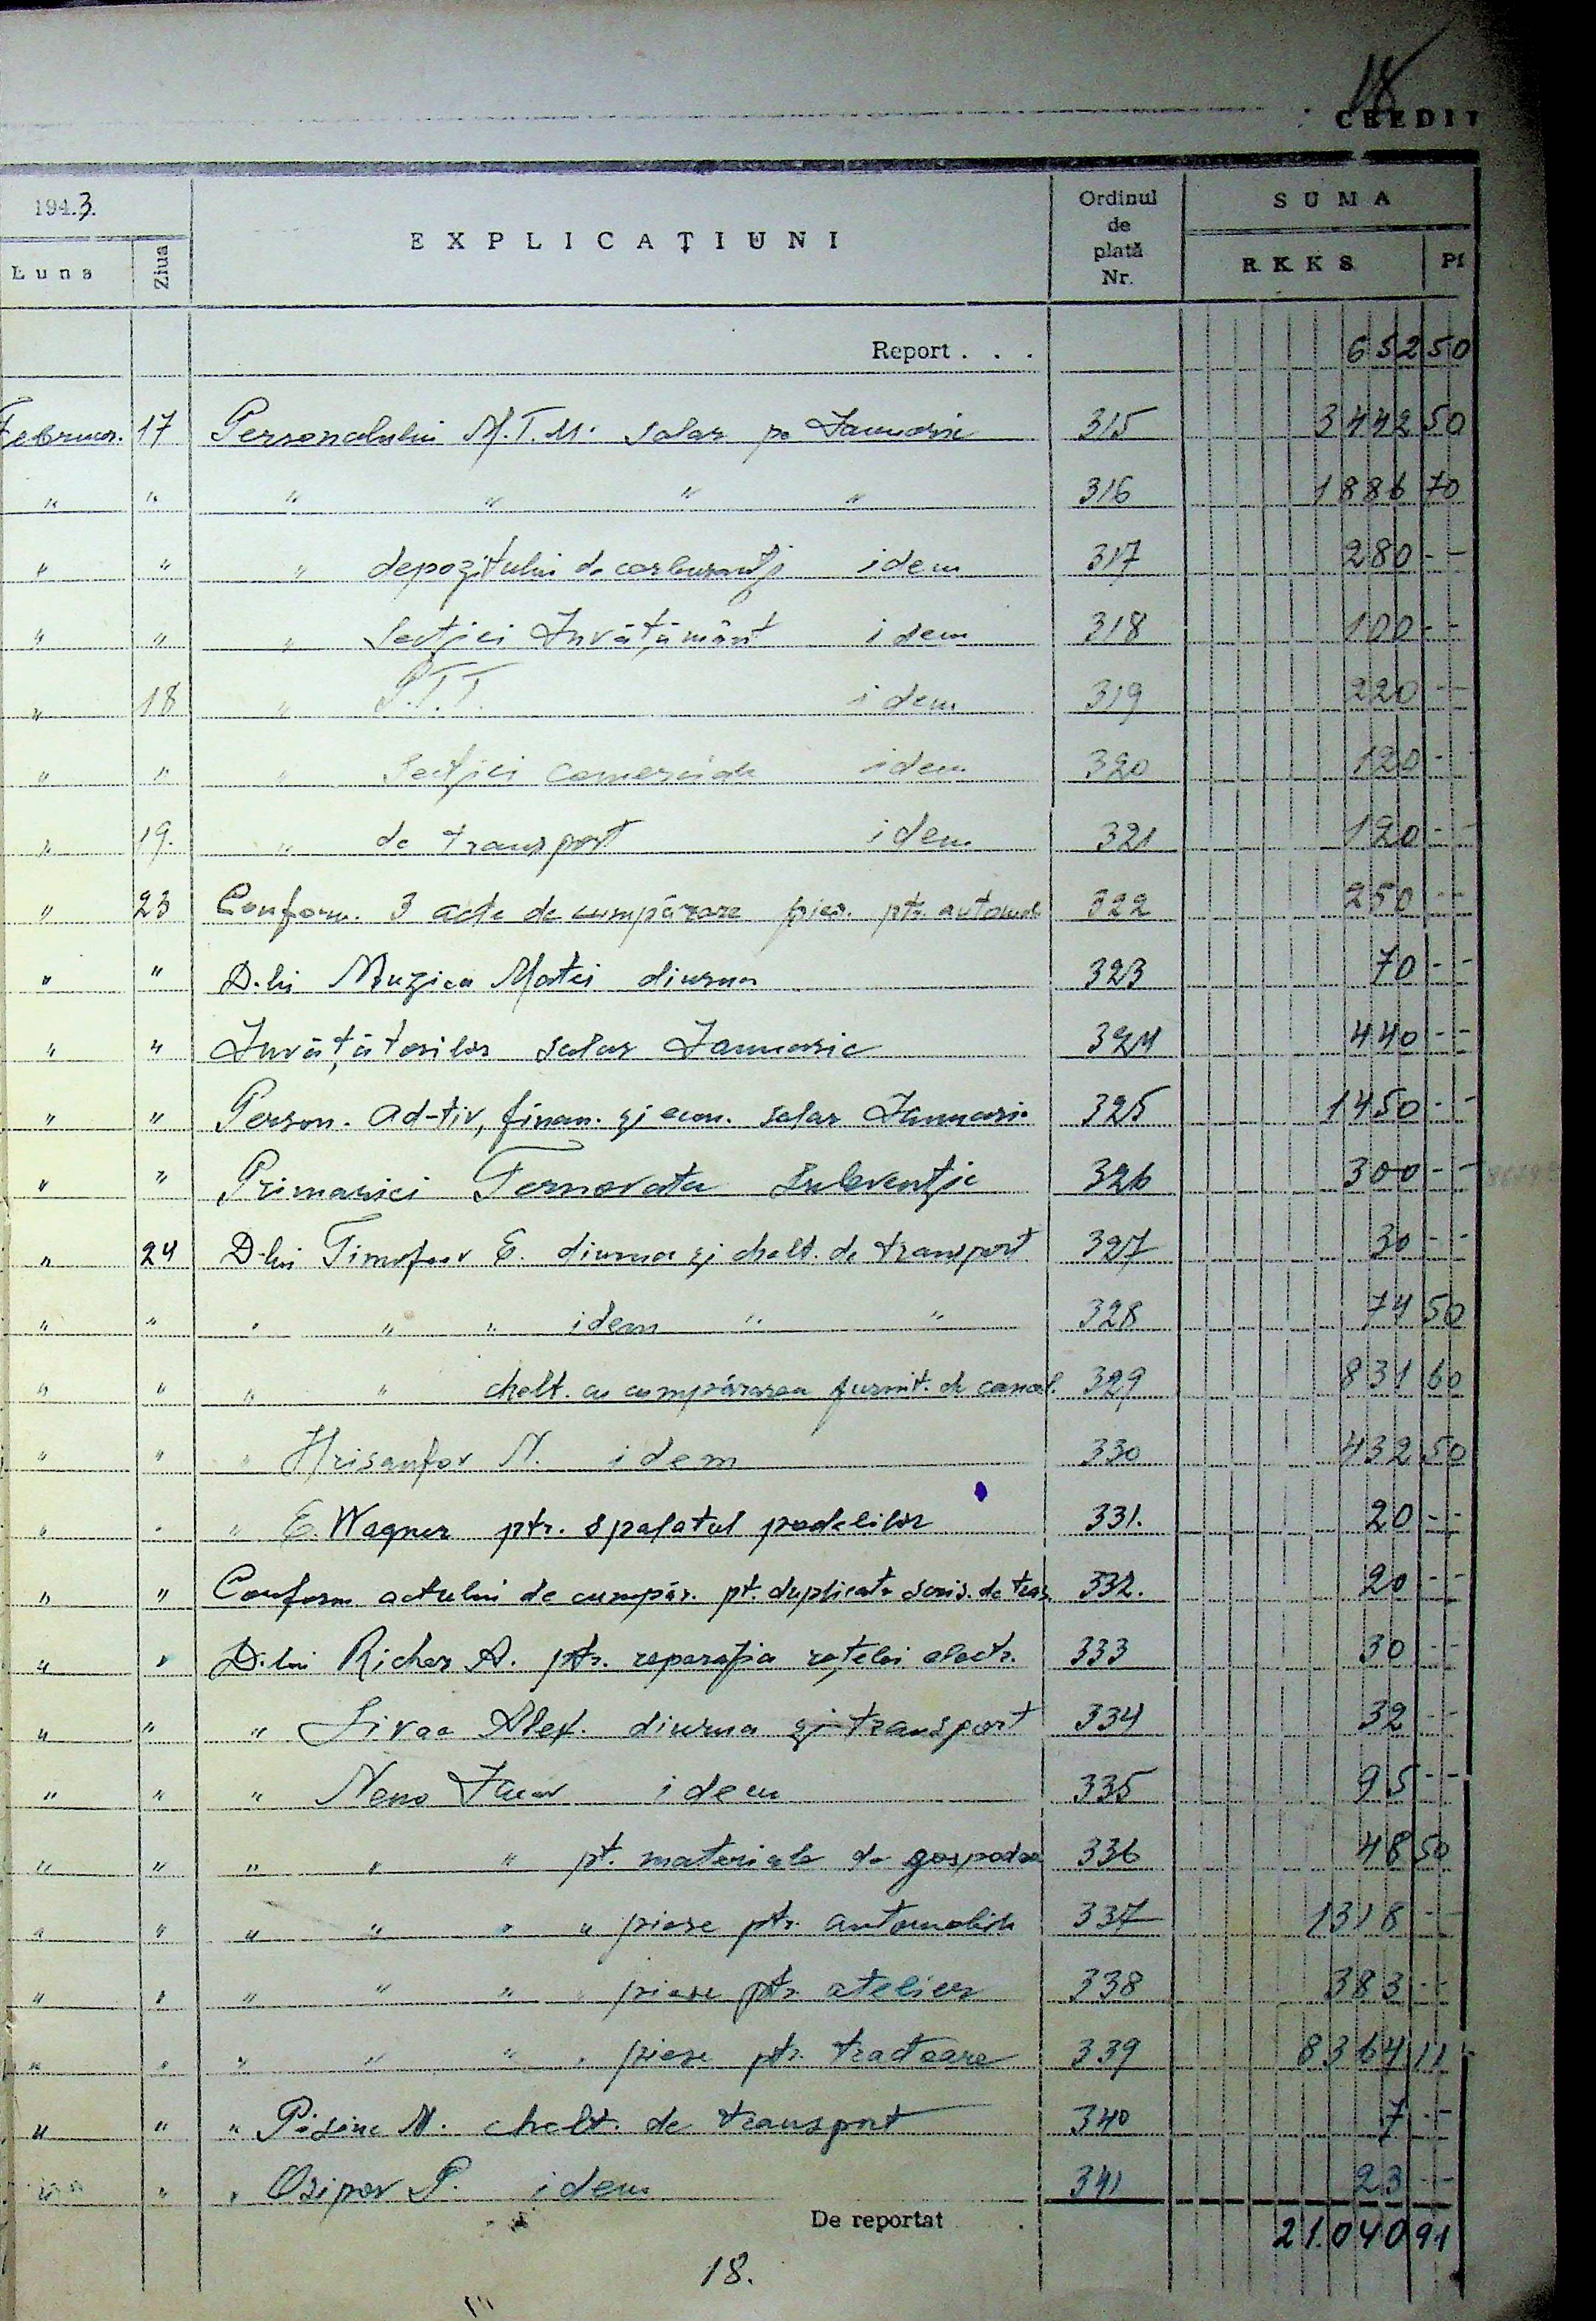 18
CREDIT
1943.
Luna Ziua EXPLICAȚIUNI Ordinul de plată Nr. SUMA R.K.K.S. Pf
Report . . . 652 50
Februar. 17 Personalului M.T.M. salar pe Ianuarie 315 3442 50
" " " " " " 316 1886 70
" " " depozitului de carburanți idem 317 280 --
" " " Secției Învățământ idem 318 100 --
" 18 " P.T.T. idem 319 220 --
" " " Secției comerciale idem 320 120 --
" 19. " de transport idem 321 120 --
" 23 Conform. 3 acte de cumpărare pies. ptr. automob 322 250 --
" " D-lui Muzica Matei diurna 323 70 --
" " Învățătorilor salar Ianuarie 324 440 --
" " Person. ad-tiv, finan. și econ. salar Ianuarie 325 1450 --
" " Primăriei Ternovata Subvenție 326 300 --
" 24 D-lui Timofeev E. diurna și chelt. de transport 327 30 --
" " " " " idem " " 328 74 50
" " " " chelt. cu cumpărarea furnit. de cancel. 329 831 60
" " " Hrisanfov N. idem 330 432 50
" " " E. Wagner ptr. spalatul podelilor 331. 20 --
" " Conform actului de cumpăr. pt. duplicate scris. de tras. 332. 20 --
" " D-lui Richer A. ptr. reparația rețelei electr. 333 30 --
" " " Alex. diurna și transport 334 32 --
" " " idem 335 95 --
" " " " " pt. materiale de gospodar 336 48 50
" " " " " " piese ptr. automobile 337 1318 --
" " " " " " piese ptr. atelier 338 383 --
" " " " " " piese ptr. tractoare 339 8364 11
" " " N. chelt. de transport 340 7 --
" " " Osipov P. idem 341 23 --
De reportat 21.040 91
18.